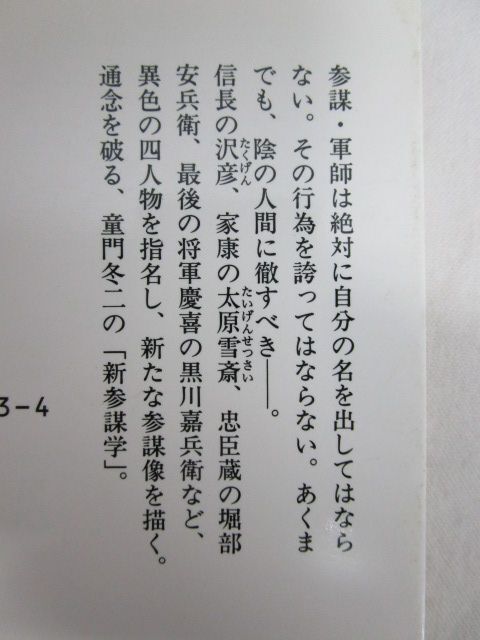 参謀・軍師は絶対に自分の名を出してはなら
ない。その行為を誇ってはならない。あくま
でも、陰の人間に徹すべき――。
信長の沢彦、家康の太原雪斎、忠臣蔵の堀部
たくげん
たいげんせっさい
安兵衛、最後の将軍慶喜の黒川嘉兵衛など、
異色の四人物を指名し、新たな参謀像を描く。
通念を破る、童門冬二の「新参謀学」。
3-4